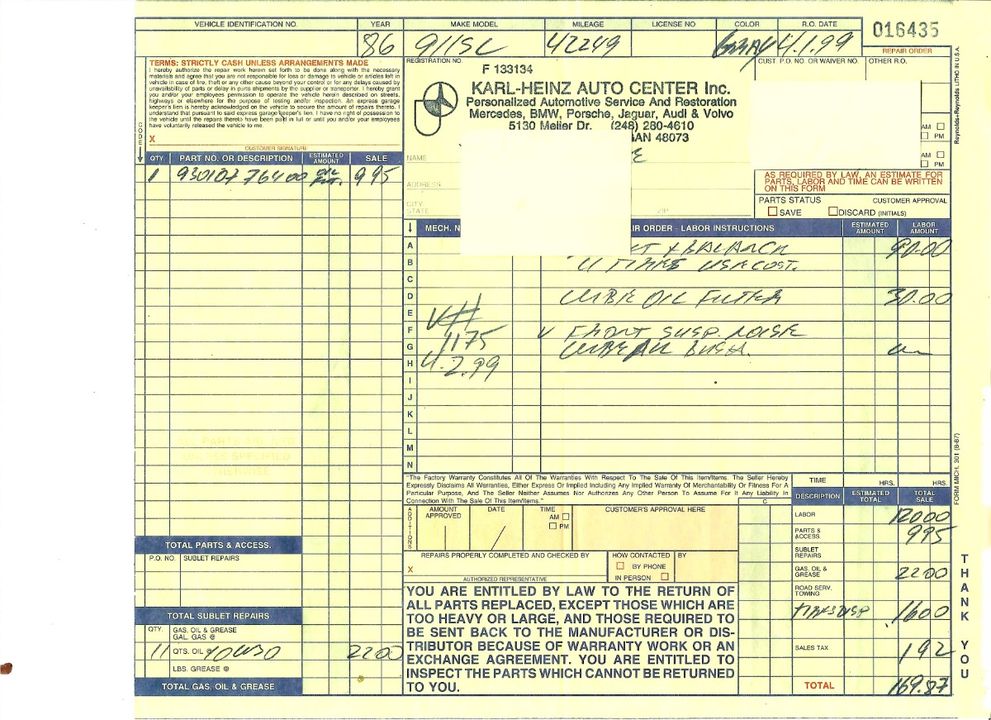 VEHICLE IDENTIFICATION NO. YEAR MAKE MODEL MILEAGE LICENSE NO COLOR R.O. DATE
016435
86 911SC 42249 GRAY 4.1.99
REPAIR ORDER
TERMS: STRICTLY CASH UNLESS ARRANGEMENTS MADE
I hereby authorize the repair work herein set forth to be done along with the necessary
materials and agree that you are not responsible for loss or damage to vehicle or articles left in
vehicle in case of fire, theft or any other cause beyond your control or for any delays caused by
unavailability of parts or delay in parts shipments by the supplier or transporter. I hereby grant
you and/or your employees permission to operate the vehicle herein described on streets,
highways or elsewhere for the purpose of testing and/or inspection. An express garage
keeper's lien is hereby acknowledged on the vehicle to secure the amount of repairs thereto. I
understand that pursuant to said express garage keeper's lien, I have no right of possession to
the vehicle until the repairs thereto have been paid in full or until you and/or your employees
have voluntarily released the vehicle to me.
X
CUSTOMER SIGNATURE
CODE
REGISTRATION NO.
F 133134
CUST P.O. NO. OR WAIVER NO. OTHER R.O.
KARL-HEINZ AUTO CENTER Inc.
Personalized Automotive Service And Restoration
Mercedes, BMW, Porsche, Jaguar, Audi & Volvo
5130 Meijer Dr. (248) 280-4610
AN 48073
AM
PM
AM
PM
Reynolds+Reynolds LITHO IN U.S.A.
NAME
ADDRESS
CITY
STATE
ZIP
AS REQUIRED BY LAW, AN ESTIMATE FOR
PARTS, LABOR AND TIME CAN BE WRITTEN
ON THIS FORM
PARTS STATUS CUSTOMER APPROVAL
SAVE DISCARD (INITIALS)
QTY. PART NO. OR DESCRIPTION ESTIMATED AMOUNT SALE
1 930107 764 00 OIL FLT. 9 95
MECH. N IR ORDER - LABOR INSTRUCTIONS ESTIMATED AMOUNT LABOR AMOUNT
A T + BALANCE 90.00
B 4 TIRES USA COST.
C
D OIL FILTER 30.00
E
F V FRONT SUSP. NOISE
G 1175
H 4.2.99
I
J
K
L
M
N
"The Factory Warranty Constitutes All Of The Warranties With Respect To The Sale Of This Item/Items. The Seller Hereby
Expressly Disclaims All Warranties, Either Express Or Implied Including Any Implied Warranty Of Merchantability Or Fitness For A
Particular Purpose, And The Seller Neither Assumes Nor Authorizes Any Other Person To Assume For It Any Liability In
Connection With The Sale Of This Item/Items."
ADDITIONS
AMOUNT APPROVED DATE TIME AM PM CUSTOMER'S APPROVAL HERE
C
REPAIRS PROPERLY COMPLETED AND CHECKED BY
X
AUTHORIZED REPRESENTATIVE
HOW CONTACTED BY
BY PHONE
IN PERSON
YOU ARE ENTITLED BY LAW TO THE RETURN OF
ALL PARTS REPLACED, EXCEPT THOSE WHICH ARE
TOO HEAVY OR LARGE, AND THOSE REQUIRED TO
BE SENT BACK TO THE MANUFACTURER OR DIS-
TRIBUTOR BECAUSE OF WARRANTY WORK OR AN
EXCHANGE AGREEMENT. YOU ARE ENTITLED TO
INSPECT THE PARTS WHICH CANNOT BE RETURNED
TO YOU.
TOTAL PARTS & ACCESS.
P.O. NO. SUBLET REPAIRS
TOTAL SUBLET REPAIRS
QTY. GAS, OIL & GREASE
GAL. GAS @
11 QTS. OIL @ 10W30 22 00
LBS. GREASE @
TOTAL GAS, OIL & GREASE
TIME HRS. HRS.
DESCRIPTION ESTIMATED TOTAL TOTAL SALE
LABOR 120 00
PARTS & ACCESS. 9 95
SUBLET REPAIRS
GAS, OIL & GREASE 22 00
ROAD SERV. TOWING
TIRES DISP 16 00
SALES TAX 1 92
TOTAL 169.87
FORM MICH. 301 (8-87)
THANK YOU